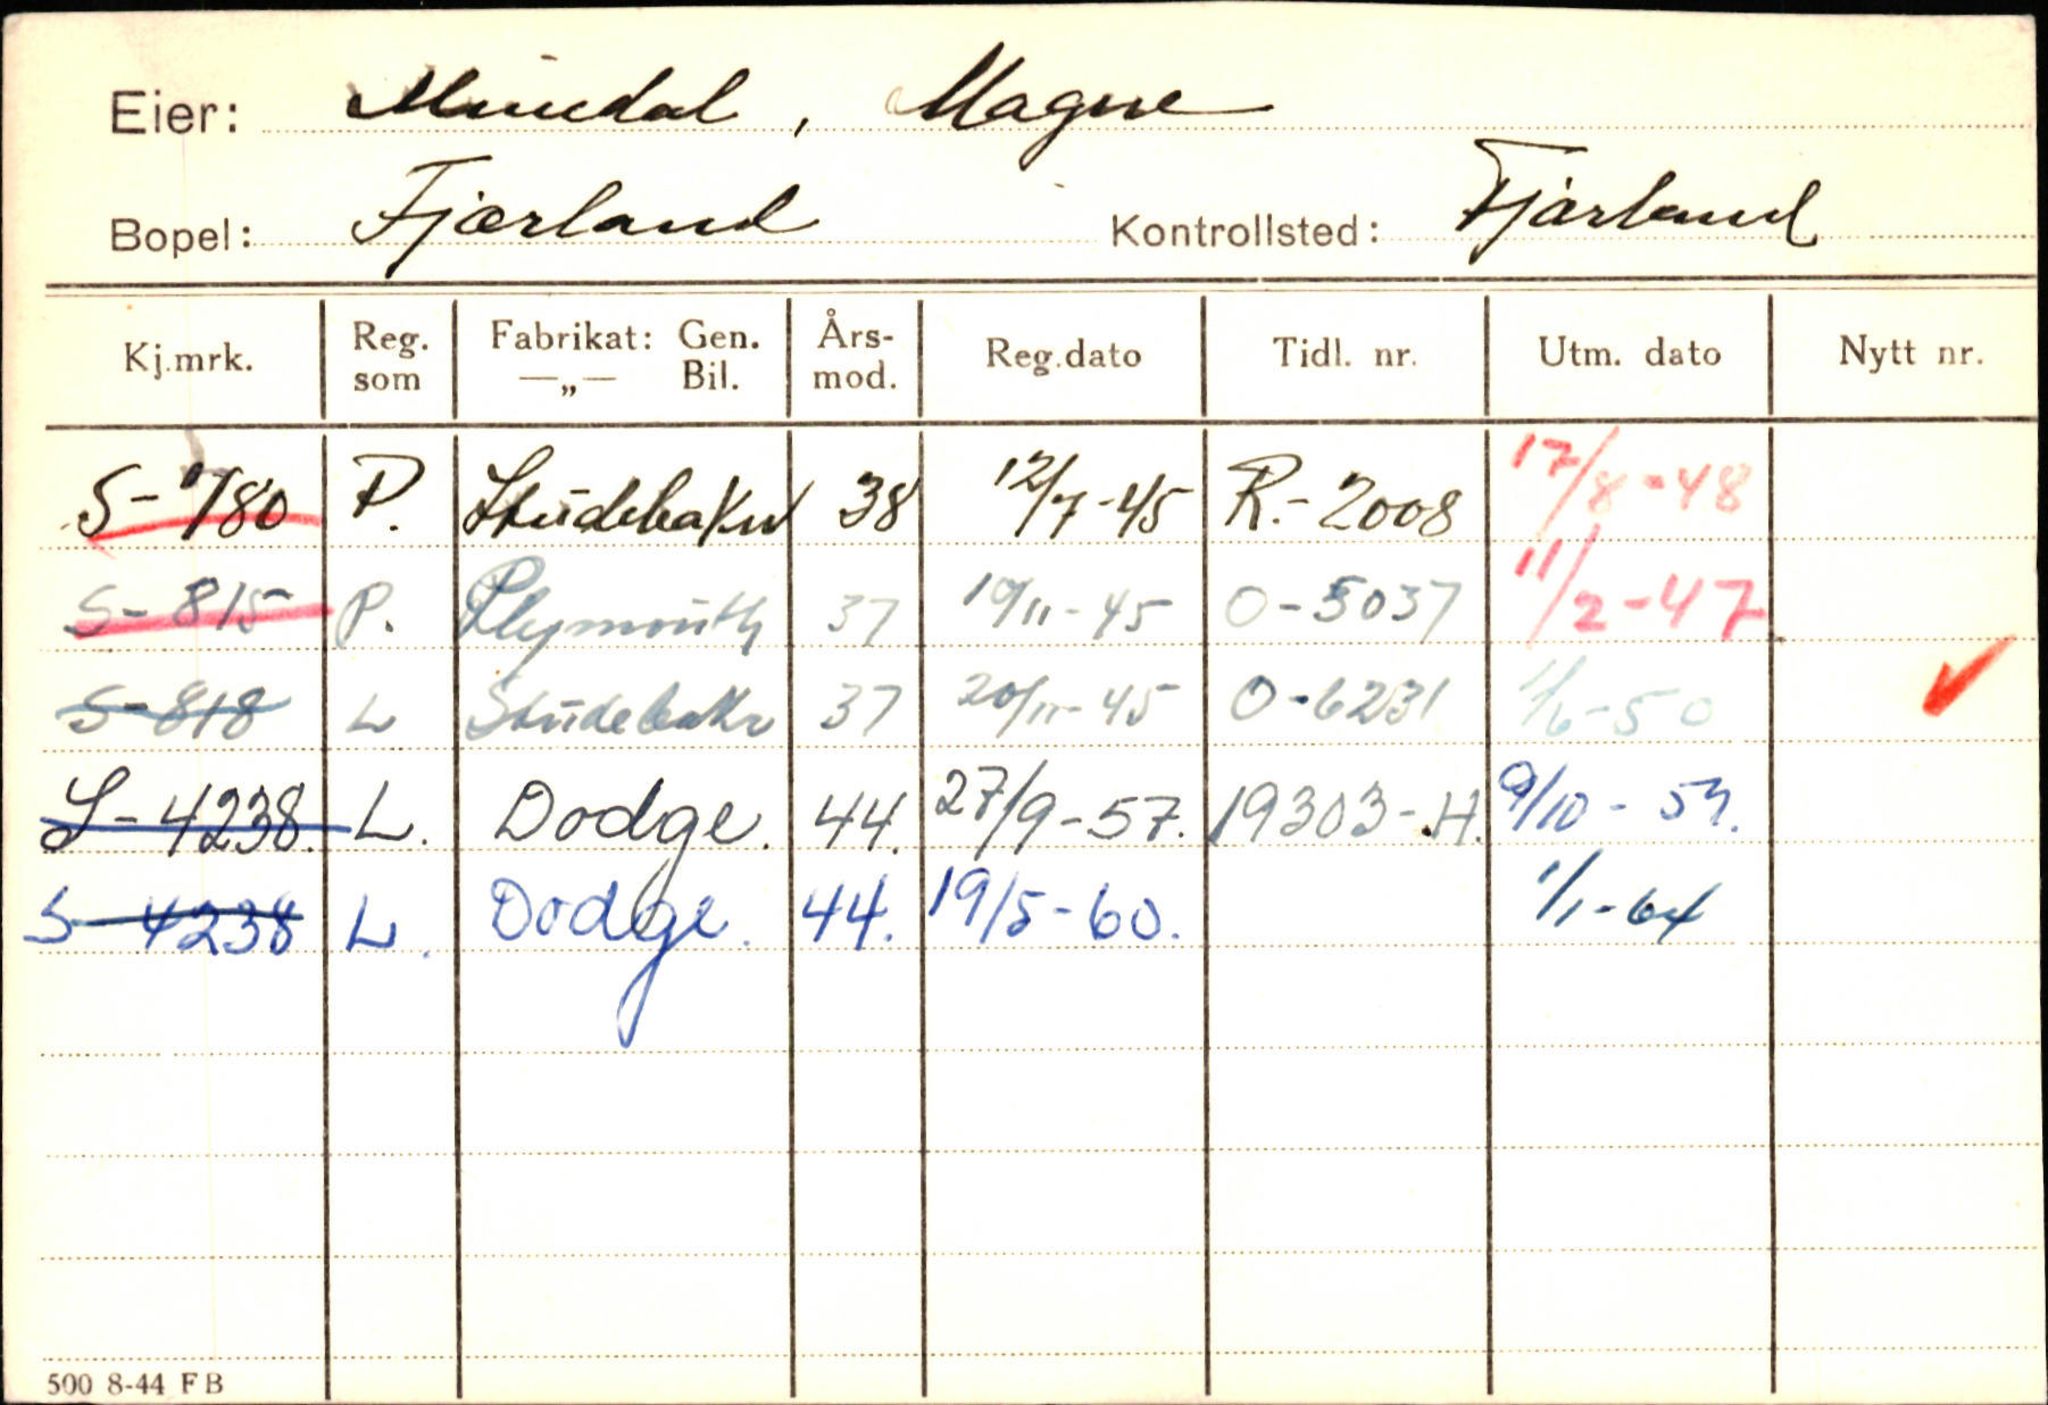 Eier: Mundal, Magne
Bopel: Fjærland Kontrollsted: Fjærland
Kj.mrk. Reg. som Fabrikat: Gen. —„— Bil. Års-mod. Reg.dato Tidl. nr. Utm. dato Nytt nr.
S-1780 P. Studebaker 38 12/7-45 R.-2008 17/8-48
S-815 P. Plymouth 37 19/11-45 O-5037 11/2-47
S-818 L Studebaker 37 20/11-45 O-6231 1/6-50
S-4238. L. Dodge. 44. 27/9-57. 19303-H. 9/10-59.
S-4238 L. Dodge. 44. 19/5-60. 1/1-64
500 8-44 FB